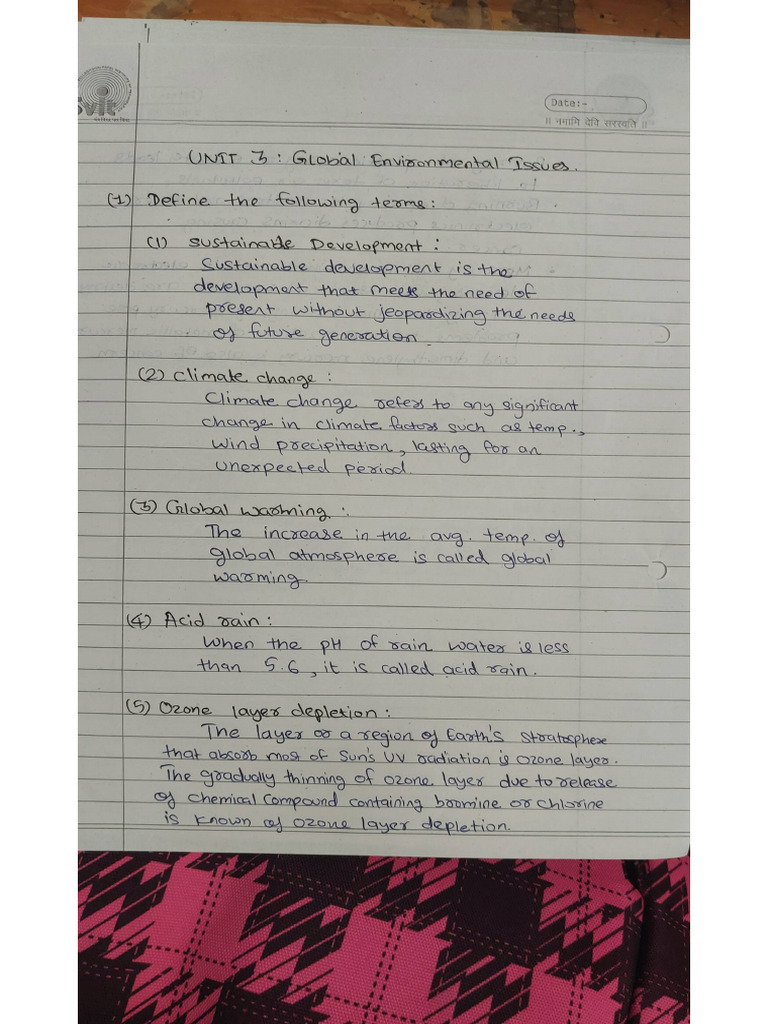 Svit
Date:-
॥ नमामि देवि सरस्वति ॥
UNIT 3 : Global Environmental Issues.
(1) Define the following terms:
(1) Sustainable Development :
Sustainable development is the
development that meets the need of
present without jeopardizing the needs
of future generation.
(2) Climate change :
Climate change refers to any significant
change in climate factors such as temp.,
wind precipitation, lasting for an
unexpected period.
(3) Global warming :
The increase in the avg. temp. of
global atmosphere is called global
warming.
(4) Acid rain :
When the pH of rain water is less
than 5.6, it is called acid rain.
(5) Ozone layer depletion :
The layer or a region of Earth's stratosphere
that absorb most of Sun's UV radiation is ozone layer.
The gradually thinning of ozone layer due to release
of chemical compound containing bromine or chlorine
is known of ozone layer depletion.